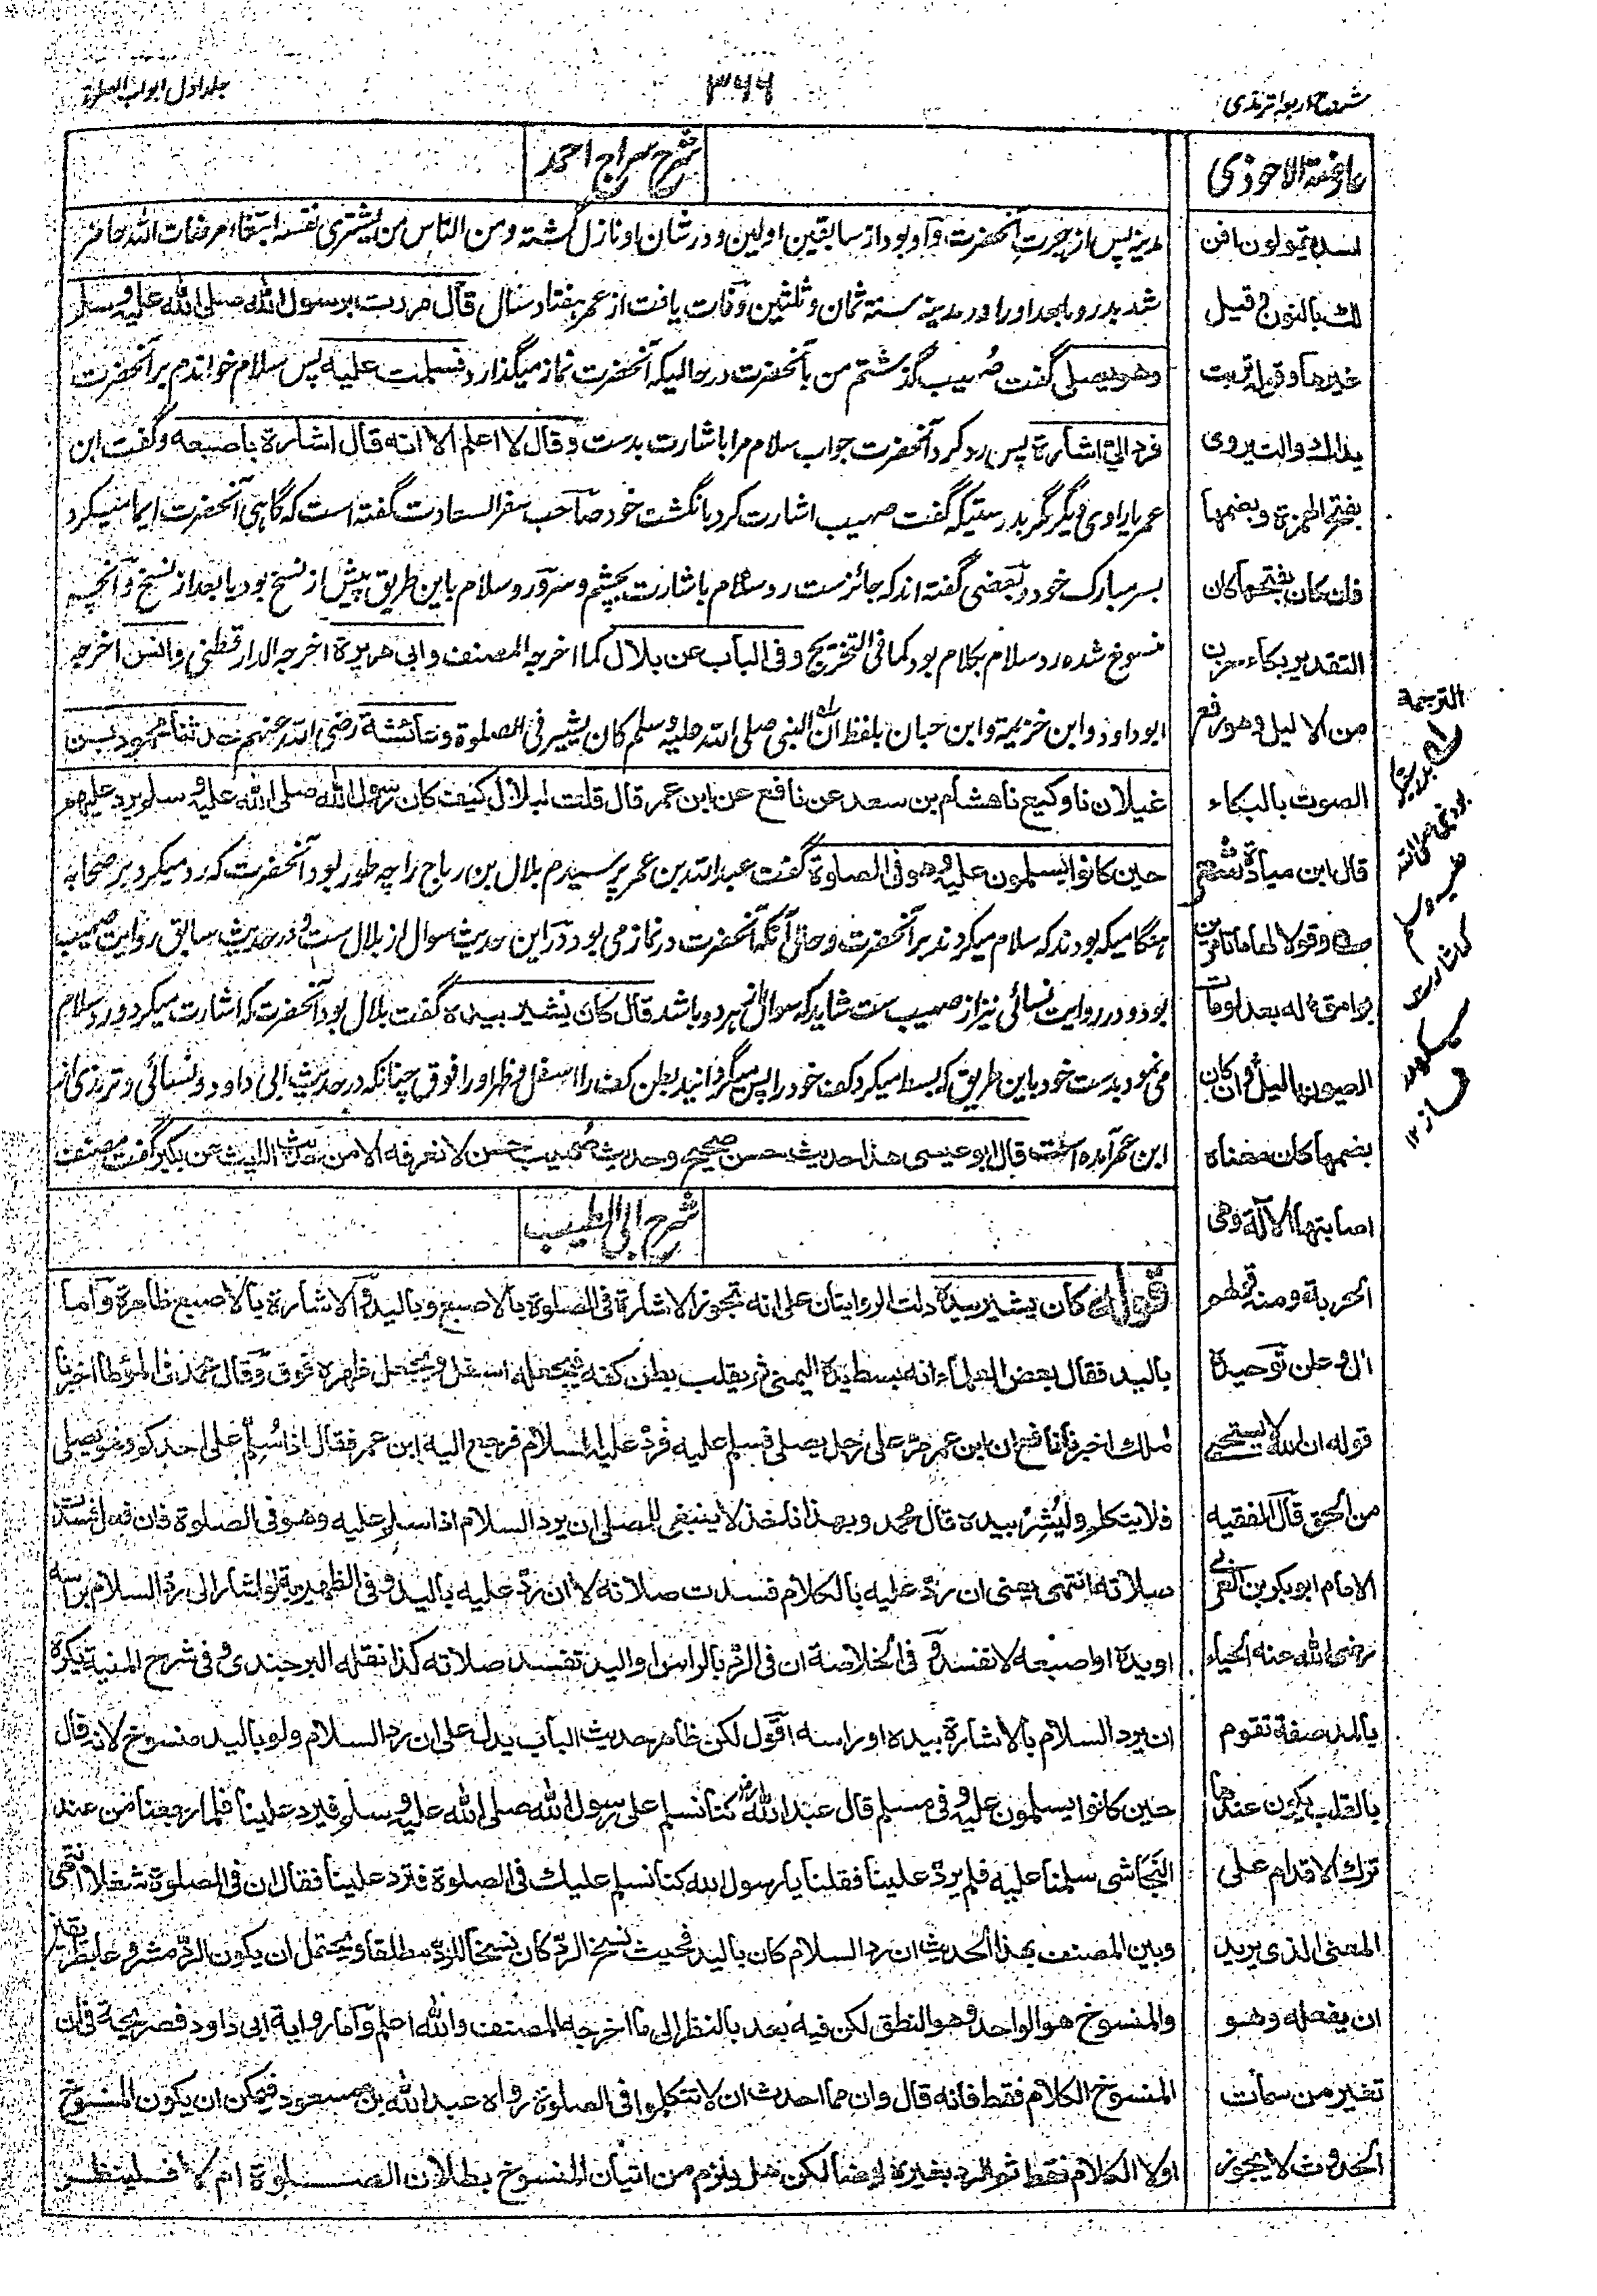 شروح اربعہ ترمذی
۳۶۶
جلد اول ابواب الصلوة
عارضة الاحوذى
يقولون افن
بالنون قيل
غيرها وقيل تربت
يداك والت يروى
بفتح الهمزة وبضمها
فان كان بفتحها كان
التقدير بكاء حزن
من الاليل وهو رفع
الصوت بالبكاء
قال ابن ميادة
وقولا لها ما تامرين
بوامق له بعد نومات
العيون اليل وان كان
بضمها كان معناه
اصابتها الآلة وهى
الحربة ومنه قولهم
توحيده
قوله ان الله لا يستحيى
من الحق قال الفقيه
الامام ابو بكر بن العربى
رضى الله عنه الحياء
بالمد صفة تقوم
بالقلب يكون عندها
ترك الاقدام على
المعنى الذى يريد
ان يفعله وهو
تغير من سمات
الحدوث لا يجوز
شرح سراج احمد
مدینه پس از هجرت آنحضرت و او بود از سابقین اولین و در شان او نازل گشته ومن الناس من يشترى نفسه ابتغاء مرضات الله حاضر
شد بدر و مابعد او را و در مدینه سنه ثمان و ثلثین وفات یافت از عمر هفتاد سال قال مررت برسول الله صلى الله عليه وسلم
وهو يصلى گفت صُهیب گذشتم من بآنحضرت در حالیکه آنحضرت نماز میگذارد فسلمت عليه پس سلام خواندم بر آنحضرت
فرد الىّ اشارة پس رد کرد آنحضرت جواب سلام مرا باشارت بدست وقال لا اعلم الا انه قال اشارة باصبعه و گفت ابن
عمر یا راوی دیگر مگر بدرستیکه گفت صهیب اشارت کرد بانگشت خود صاحب سفر السعادت گفته است که گاهی آنحضرت ایما میکرد
بسر مبارک خود و بعضی گفته اند که جائزست رد سلام باشارت بچشم و سر و رد سلام باین طریق پیش از نسخ بود یا بعد از نسخ و آنچه
منسوخ شده رد سلام بکلام بود كما فى التخريج وفى الباب عن بلال كما اخرجه المصنف وابى هريرة اخرجه الدارقطنى وانس اخرجه
ابو داود وابن خزيمة وابن حبان بلفظ ان النبى صلى الله عليه وسلم كان يشير فى الصلوة وعائشة رضى الله عنهم حدثنا محمود بن
غيلان نا وكيع نا هشام بن سعد عن نافع عن ابن عمر قال قلت لبلال كيف كان رسول الله صلى الله عليه وسلم يرد عليهم
حين كانوا يسلمون عليه وهو فى الصلوة گفت عبدالله بن عمر پرسیدم بلال بن رباح را چه طور بود آنحضرت که رد میکرد بر صحابه
هنگامیکه بودند که سلام میکردند بر آنحضرت و حال آنکه آنحضرت در نماز می بود و در این حدیث سوال از بلال ست و در حدیث سابق روایت صهیب
بود و در روایت نسائی نیز از صهیب ست شاید که سوال از هر دو باشد قال كان يشير بيده گفت بلال بود آنحضرت که اشارت میکرد و رد سلام
می نمود بدست خود باین طریق که بسط میکرد کف خود را پس میگردانید بطن کف را اسفل و ظهر او را فوق چنانکه در حدیث ابی داود و نسائی و ترمذی از
ابن عمر آمده است قال ابو عيسى هذا حديث حسن صحيح وحديث صُهيب حسن لا نعرفه الا من حديث الليث عن بكير گفت مصنف
شرح ابی الطیب
قوله كان يشير بيده دلت الروايتان على انه تجوز الاشارة فى الصلوة بالاصبع وباليد والاشارة بالاصبع ظاهرة واما
باليد فقال بعض العلماء انه بسط يده اليمنى ثم يقلب بطن كفه فيجعله اسفل ويجعل ظهره فوق وقال محمد فى المؤطا اخبرنا
ملك اخبرنا نافع ان ابن عمر مرّ على رجل يصلى فسلم عليه فردّ عليه السلام فرجع اليه ابن عمر فقال اذا سُلّم على احدكم وهو يصلى
فلا يتكلم وليُشِرْ بيده قال محمد وبهذا ناخذ لا ينبغى للمصلى ان يرد السلام اذا سلم عليه وهو فى الصلوة فان فعل فسدت
صلاته انتهى يعنى ان ردّ عليه بالكلام فسدت صلاته لا ان ردّ عليه باليد وفى الظهيرية لو اشار الى ردّ السلام براسه
او بيده او اصبعه لا تفسد وفى الخلاصة ان فى الردّ بالراس او اليد تفسد صلاته كذا نقله البرجندى وفى شرح المنية يكره
ان يرد السلام بالاشارة بيده او راسه اقول لكن ظاهر حديث الباب يدل على ان رد السلام ولو باليد منسوخ لانه قال
حين كانوا يسلمون عليه وفى مسلم قال عبد الله كنا نسلم على رسول الله صلى الله عليه وسلم فيرد علينا فلما رجعنا من عند
النجاشى سلمنا عليه فلم يردّ علينا فقلنا يا رسول الله كنا نسلم عليك فى الصلوة فترد علينا فقال ان فى الصلوة شغلا انتهى
وبين المصنف بهذا الحديث ان رد السلام كان باليد فحيث نسخ الردّ كان نسخا للردّ مطلقا ويحتمل ان يكون الردّ مشروعا بطريقين
والمنسوخ هو الواحد وهو النطق لكن فيه بعد بالنظر الى ما اخرجه المصنف والله اعلم واما رواية ابى داود فصريحة فى ان
المنسوخ الكلام فقط فانه قال وان مما احدث ان لا تتكلموا فى الصلوة رواه عبد الله بن مسعود فيمكن ان يكون المنسوخ
اولا الكلام فقط ثم الرد بغيره ايضا لكن هل يلزم من اتيان المنسوخ بطلان الصلوة ام لا فلينظر
الترجمة